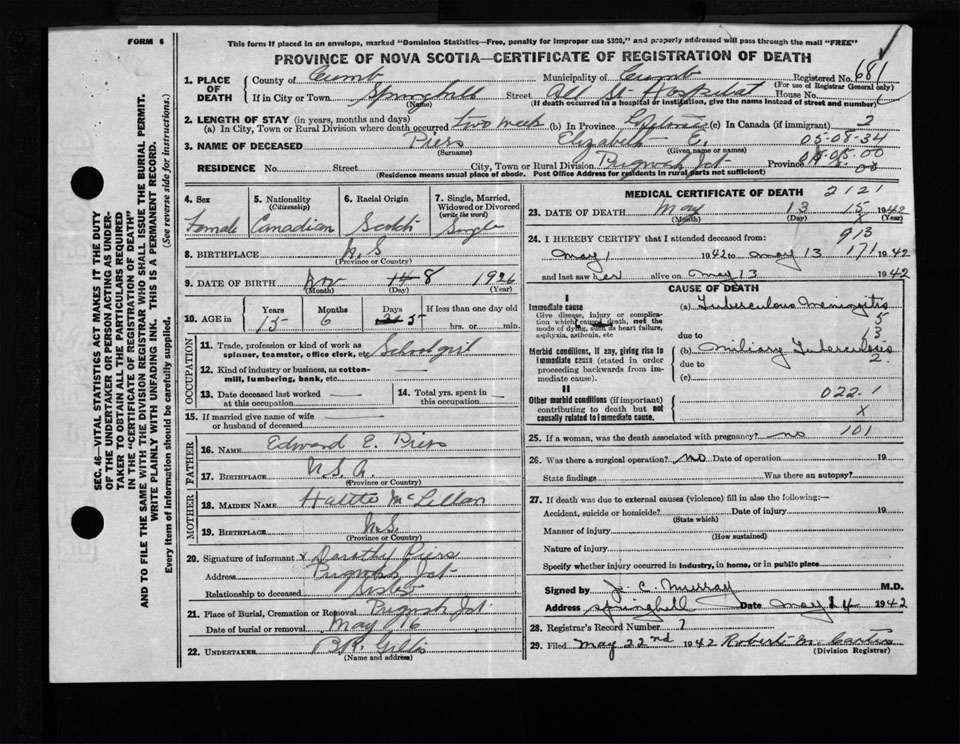 FORM 6
This form if placed in an envelope, marked "Dominion Statistics—Free, penalty for improper use $300," and properly addressed will pass through the mail "FREE"
PROVINCE OF NOVA SCOTIA—CERTIFICATE OF REGISTRATION OF DEATH
1. PLACE OF DEATH County of Cumb Municipality of Cumb Registered No. 681
(For use of Registrar General only)
If in City or Town Springhill Street All St. Hospital House No.
(Name) (If death occurred in a hospital or institution, give the name instead of street and number)
2. LENGTH OF STAY (in years, months and days)
(a) In City, Town or Rural Division where death occurred two weeks (b) In Province Lifetime (c) In Canada (if immigrant) 2
3. NAME OF DECEASED Piers Elizabeth E. 05-08-34
(Surname) (Given name or names)
RESIDENCE No. Street City, Town or Rural Division Pugwash Jct Province 05-00
(Residence means usual place of abode. Post Office Address for residents in rural parts not sufficient) 00
4. Sex 5. Nationality (Citizenship) 6. Racial Origin 7. Single, Married, Widowed or Divorced (write the word)
Female Canadian Scotch Single
8. BIRTHPLACE N.S
(Province or Country)
9. DATE OF BIRTH Nov 8 1926
(Month) (Day) (Year)
10. AGE in Years Months Days If less than one day old
15 6 5 hrs. or min.
OCCUPATION
11. Trade, profession or kind of work as spinner, teamster, office clerk, etc. Schoolgirl
12. Kind of industry or business, as cotton-mill, lumbering, bank, etc.
13. Date deceased last worked at this occupation 14. Total yrs. spent in this occupation
15. If married give name of wife or husband of deceased
FATHER
16. NAME Edward E. Piers
17. BIRTHPLACE U.S.A.
(Province or Country)
MOTHER
18. MAIDEN NAME Hattie McLellan
19. BIRTHPLACE N.S.
(Province or Country)
20. Signature of informant x Dorothy Piers
Address Pugwash Jct
Relationship to deceased Sister
21. Place of Burial, Cremation or Removal Pugwash Jct
Date of burial or removal May 16
22. UNDERTAKER
(Name and address)
MEDICAL CERTIFICATE OF DEATH 2121
23. DATE OF DEATH May 13 15 1942
(Month) (Day) (Year)
913
24. I HEREBY CERTIFY that I attended deceased from:
May 1 1942 to May 13 171 1942
and last saw her alive on May 13 1942
CAUSE OF DEATH
I
Immediate cause (a) Tuberculous Meningitis
Give disease, injury or complication which caused death, not the mode of dying, such as heart failure, asphyxia, asthenia, etc. 5
due to 13
Morbid conditions, if any, giving rise to immediate cause (stated in order proceeding backwards from immediate cause). (b) Miliary Tuberculosis
due to 2
(c)
II
Other morbid conditions (if important) contributing to death but not causally related to immediate cause. 022.1
X
25. If a woman, was the death associated with pregnancy? no 101
26. Was there a surgical operation? No Date of operation 19
State findings Was there an autopsy?
27. If death was due to external causes (violence) fill in also the following:—
Accident, suicide or homicide? Date of injury 19
(State which)
Manner of injury
(How sustained)
Nature of injury
Specify whether injury occurred in industry, in home, or in public place
Signed by J. C. Murray M.D.
Address Springhill Date May 14 1942
28. Registrar's Record Number 7
29. Filed May 22nd 1942 Robert M.
(Division Registrar)
SEC. 46—VITAL STATISTICS ACT MAKES IT THE DUTY
OF THE UNDERTAKER OR PERSON ACTING AS UNDER-
TAKER TO OBTAIN ALL THE PARTICULARS REQUIRED
IN THE "CERTIFICATE OF REGISTRATION OF DEATH"
AND TO FILE THE SAME WITH THE DIVISION REGISTRAR WHO SHALL ISSUE THE BURIAL PERMIT.
WRITE PLAINLY WITH UNFADING INK. THIS IS A PERMANENT RECORD.
Every item of information should be carefully supplied. (See reverse side for instructions).